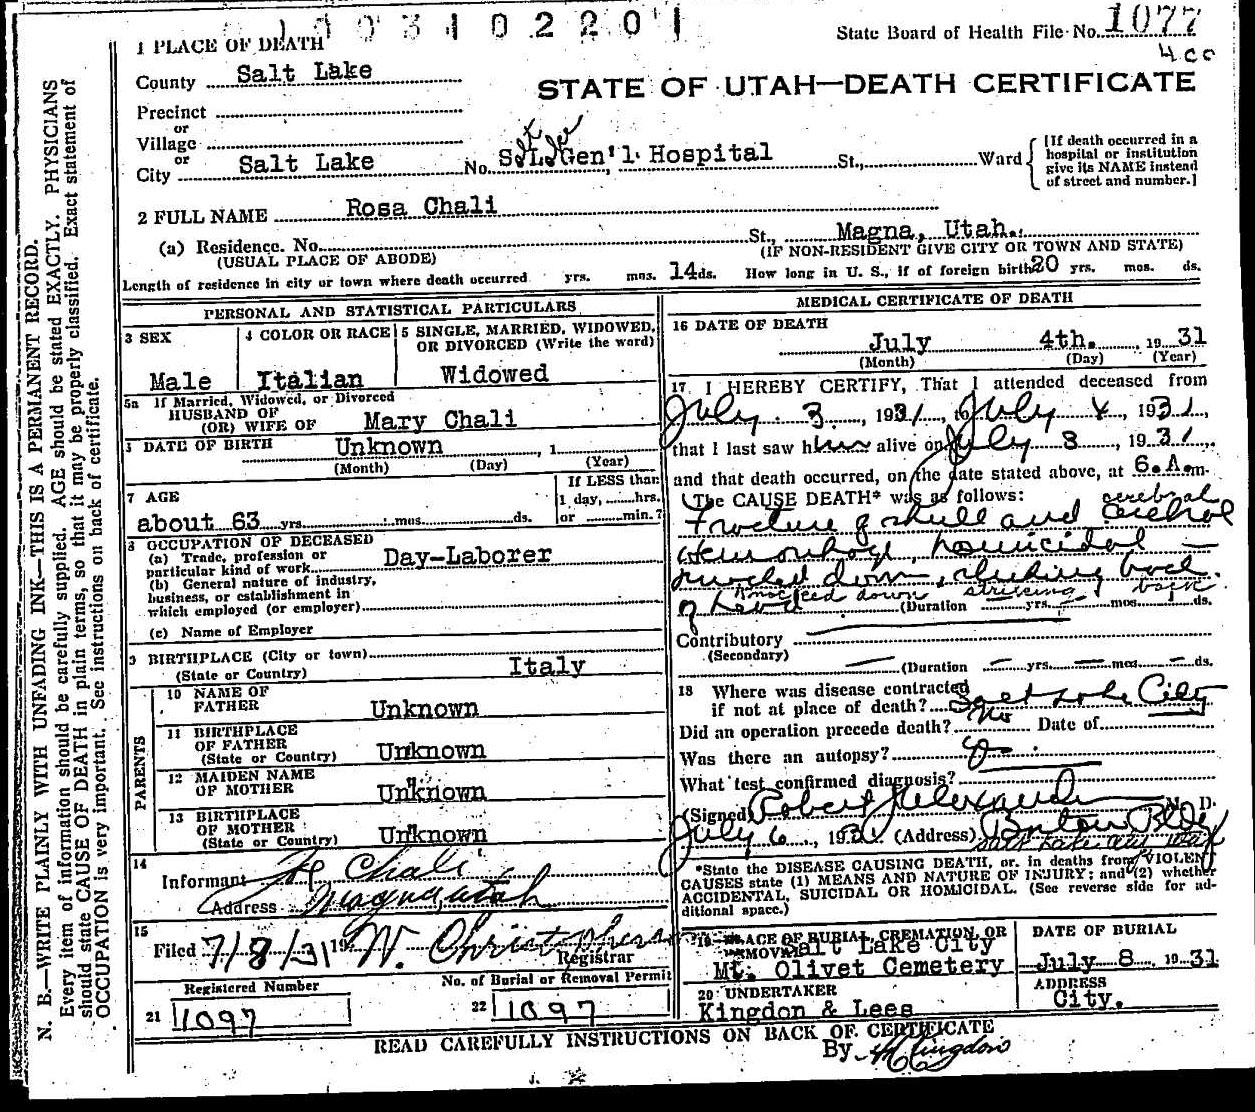 1003102201
State Board of Health File No. 1077
4 cc
1 PLACE OF DEATH
County Salt Lake
STATE OF UTAH—DEATH CERTIFICATE
Precinct
or
Village
or
City Salt Lake No. S.L. Gen'l. Hospital St., Ward
Salt Lake
[If death occurred in a hospital or institution give its NAME instead of street and number.]
2 FULL NAME Rosa Chali
(a) Residence. No. St., Magna, Utah.
(USUAL PLACE OF ABODE) (IF NON-RESIDENT GIVE CITY OR TOWN AND STATE)
Length of residence in city or town where death occurred yrs. mos. 14 ds. How long in U. S., if of foreign birth 20 yrs. mos. ds.
PERSONAL AND STATISTICAL PARTICULARS
3 SEX
Male
4 COLOR OR RACE
Italian
5 SINGLE, MARRIED, WIDOWED, OR DIVORCED (Write the word)
Widowed
5a If Married, Widowed, or Divorced
HUSBAND OF
(OR) WIFE OF Mary Chali
DATE OF BIRTH Unknown , 1
(Month) (Day) (Year)
7 AGE
about 63 yrs. mos. ds.
If LESS than
1 day, hrs.
or min.?
8 OCCUPATION OF DECEASED
(a) Trade, profession or
particular kind of work Day-Laborer
(b) General nature of industry,
business, or establishment in
which employed (or employer)
(c) Name of Employer
9 BIRTHPLACE (City or town)
(State or Country) Italy
PARENTS
10 NAME OF
FATHER Unknown
11 BIRTHPLACE
OF FATHER
(State or Country) Unknown
12 MAIDEN NAME
OF MOTHER Unknown
13 BIRTHPLACE
OF MOTHER
(State or Country) Unknown
14
Informant Chali
Address Magna, Utah
15
Filed 7/8/31 19 W. Christopherson
Registrar
Registered Number
21 1097
No. of Burial or Removal Permit
22 1097
MEDICAL CERTIFICATE OF DEATH
16 DATE OF DEATH
July 4th. , 19 31
(Month) (Day) (Year)
17 I HEREBY CERTIFY, That I attended deceased from
July 3 , 1931, to July 4 , 1931,
that I last saw him alive on July 3 , 1931,
and that death occurred, on the date stated above, at 6.A.m.
The CAUSE DEATH* was as follows:
cerebral
Fracture of skull and cerebral
Hemorrhage, homicidal —
knocked down, striking back
knocked down striking back
of head (Duration yrs. mos. ds.
Contributory
(Secondary)
(Duration yrs. mos. ds.
18 Where was disease contracted
if not at place of death? Salt Lake City
Did an operation precede death? No Date of
Was there an autopsy?
What test confirmed diagnosis?
(Signed) Robert Alexander M. D.
July 6, 1931 (Address) Boston Bldg
Salt Lake City Utah
*State the DISEASE CAUSING DEATH, or, in deaths from VIOLENT
CAUSES state (1) MEANS AND NATURE OF INJURY; and (2) whether
ACCIDENTAL, SUICIDAL OR HOMICIDAL. (See reverse side for ad-
ditional space.)
19 PLACE OF BURIAL, CREMATION, OR
REMOVAL Salt Lake City
Mt. Olivet Cemetery
DATE OF BURIAL
July 8 , 19 31
20 UNDERTAKER
Kingdon & Lees
ADDRESS
City.
READ CAREFULLY INSTRUCTIONS ON BACK OF CERTIFICATE
By Kingdon
N. B.—WRITE PLAINLY WITH UNFADING INK—THIS IS A PERMANENT RECORD.
Every item of information should be carefully supplied. AGE should be stated EXACTLY. PHYSICIANS
should state CAUSE OF DEATH in plain terms, so that it may be properly classified. Exact statement of
OCCUPATION is very important. See instructions on back of certificate.